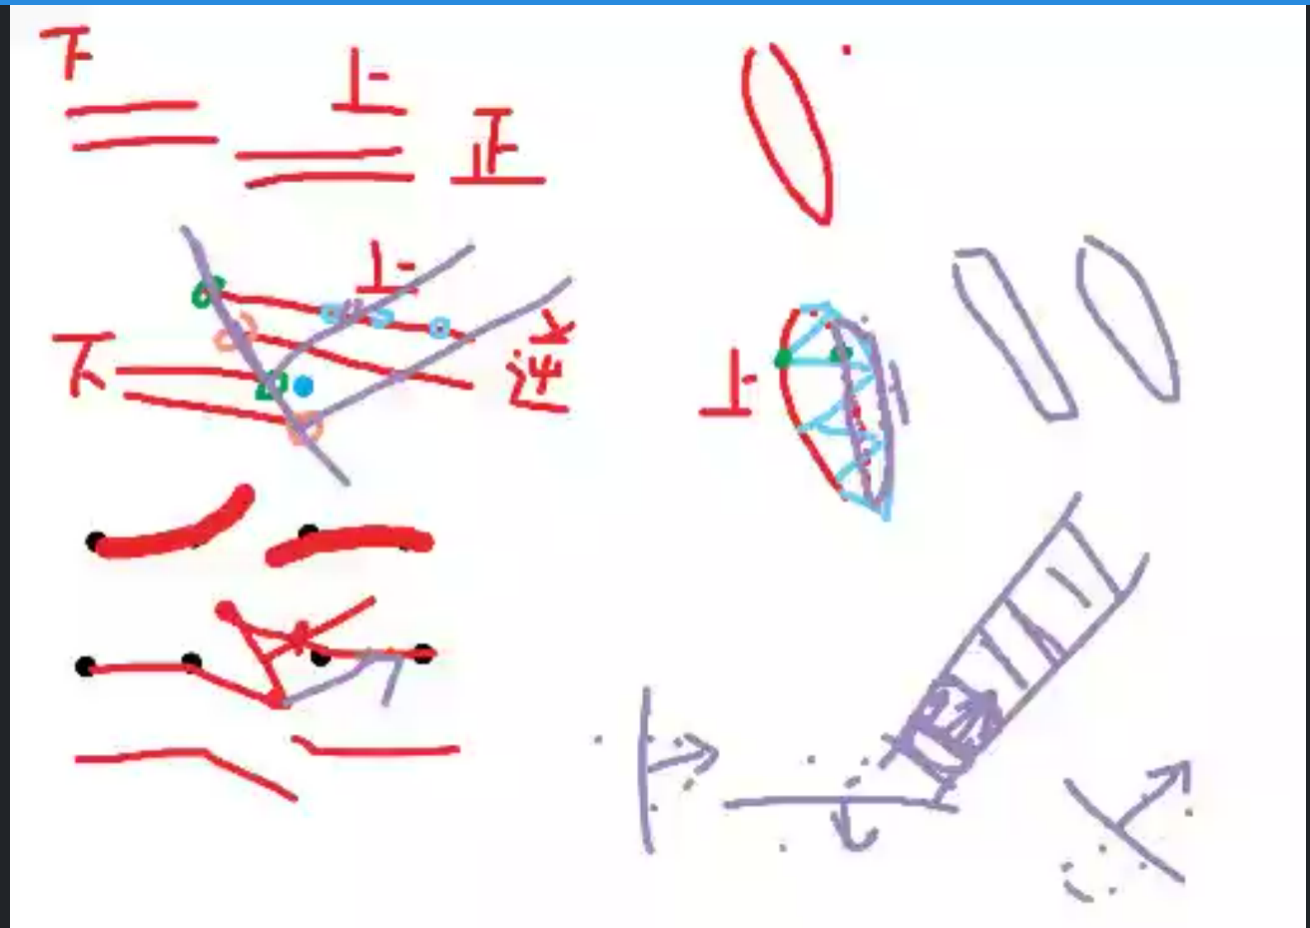 下
上
正
上
下
逆
上